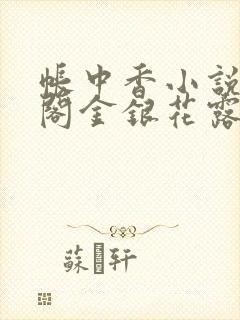 帳中香小說
閣金銀花露
蘇 轩